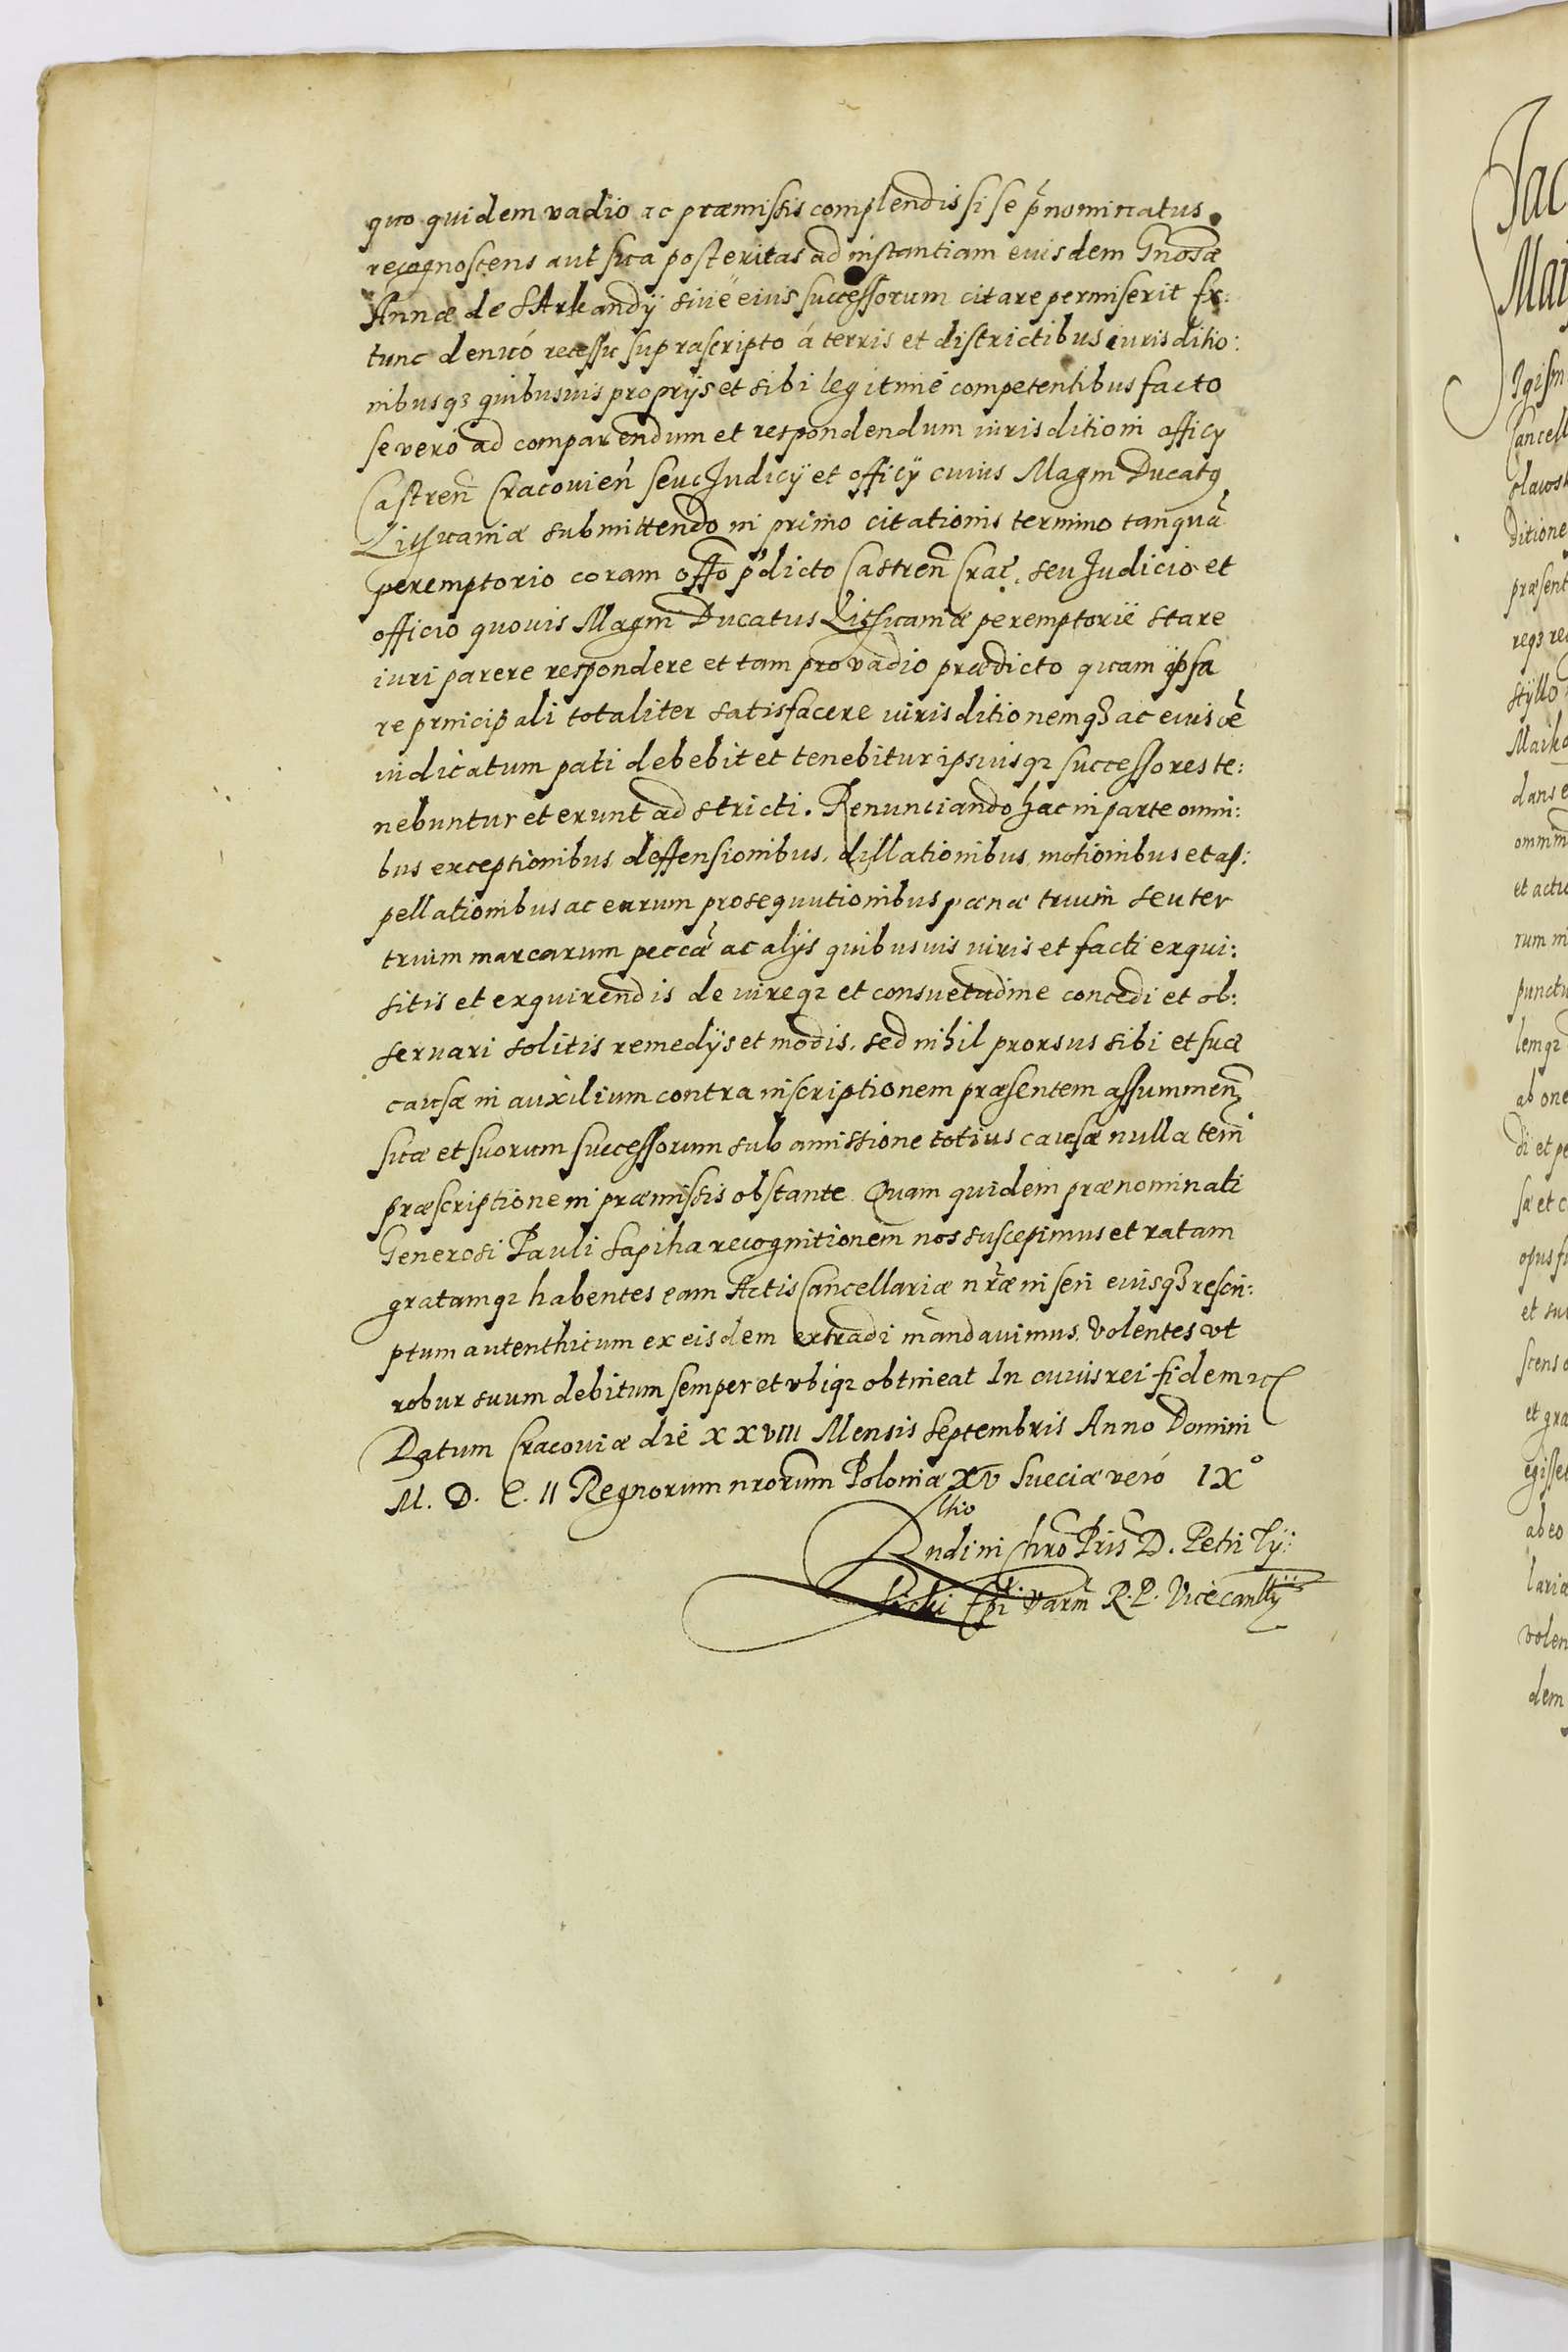 quo quidem vadio ac præmissis complendis si se p̃nominatus
recognoscens aut sua posteritas ad instantiam euisdem Gnosæ
Annæ de SArkandÿ siue eius successorum citare permiserit Ex:
tunc denuó recessu suprascripto á terris et districtibus iurisditio:
nibusqz quibusuis proprÿs et sibi legitimé competentibus facto
se veró ad comparendum et respondendum iurisditioni officÿ
Castren̄ Cracouien̄ seu Judicÿ et officÿ cuius Magni Ducatꝯ
Lithuaniæ submittendo in primo citationis termino tanquã
peremptorio coram offo p̃dicto Castren̄ Crac̃. seu Judicio et
officio quouis Magni Ducatus Lithuaniæ peremptorië stare
iuri parere respondere et tam pro vadio prædicto quam ipsa
re principali totaliter satisfacere iurisditionemqz ac euis cẽ
iudicatum pati debebit et tenebitur ipsiusqz successores te:
nebuntur et erunt adstricti. Renunciando hac in parte omni:
bus exceptionibus deffensionibus, dillationibus motionibus et ap:
pellationibus ac earum prosequutionibus pænæ trium seu ter
trium marcarum peccæ̃ ac alÿs quibusuis iuris et facti exqui:
sitis et exquirendis de iureqz et consuetudine concedi et ob:
seruari solitis remedÿs et modis, sed nihil prorsus sibi et suæ
causæ in auxilium contra inscriptionem præsentem assummen̄
suæ et suorum successorum sub amissione totius causæ nulla tem̄
præscriptione in præmissis obstante Quam quidem prænominati
Generosi Pauli Sapiha recognitionem nos suscepimus et ratam
gratamqz habentes eam Actis Cancellariæ nr̃æ inseri euisqz rescri:
ptum autenthicum ex eisdem extradi mandauimus. Volentes vt
robur suum debitum semper et vbiqz obtineat In cuius rei fidem
Datum Cracouiæ die XXVIII Mensis Septembris Anno Domini
M. D. C. II Regnorum nrorum Poloniæ XV Sueciæ veró IX°
Rndi in Chro Pris D. Petri Tÿ:
licki Epi Varm̃ R. P. Vicecanllÿ